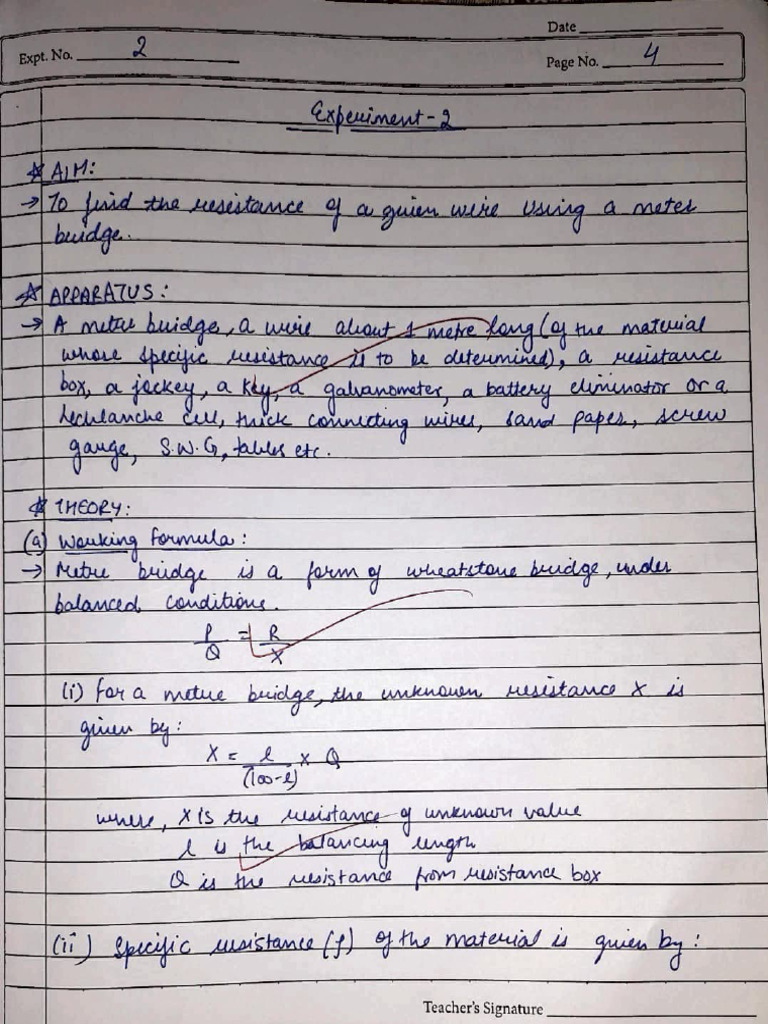 Date
Expt. No. 2
Page No. 4
Experiment-2
☆ AIM:
→ To find the resistance of a given wire using a meter
bridge.
☆ APPARATUS:
→ A metre bridge, a wire about 1 metre long (of the material
whose specific resistance is to be determined), a resistance
box, a jockey, a key, a galvanometer, a battery eliminator or a
Lechlanche cell, thick connecting wires, sand paper, screw
gauge, S.W.G, tables etc.
☆ THEORY:
(a) Working formula:
→ Metre bridge is a form of wheatstone bridge, under
balanced conditions.
P/Q = R/X
(i) For a metre bridge, the unknown resistance X is
given by:
X = l/(100-l) x Q
where, X is the resistance of unknown value
l is the balancing length
Q is the resistance from resistance box
(ii) Specific resistance (ρ) of the material is given by:
Teacher's Signature